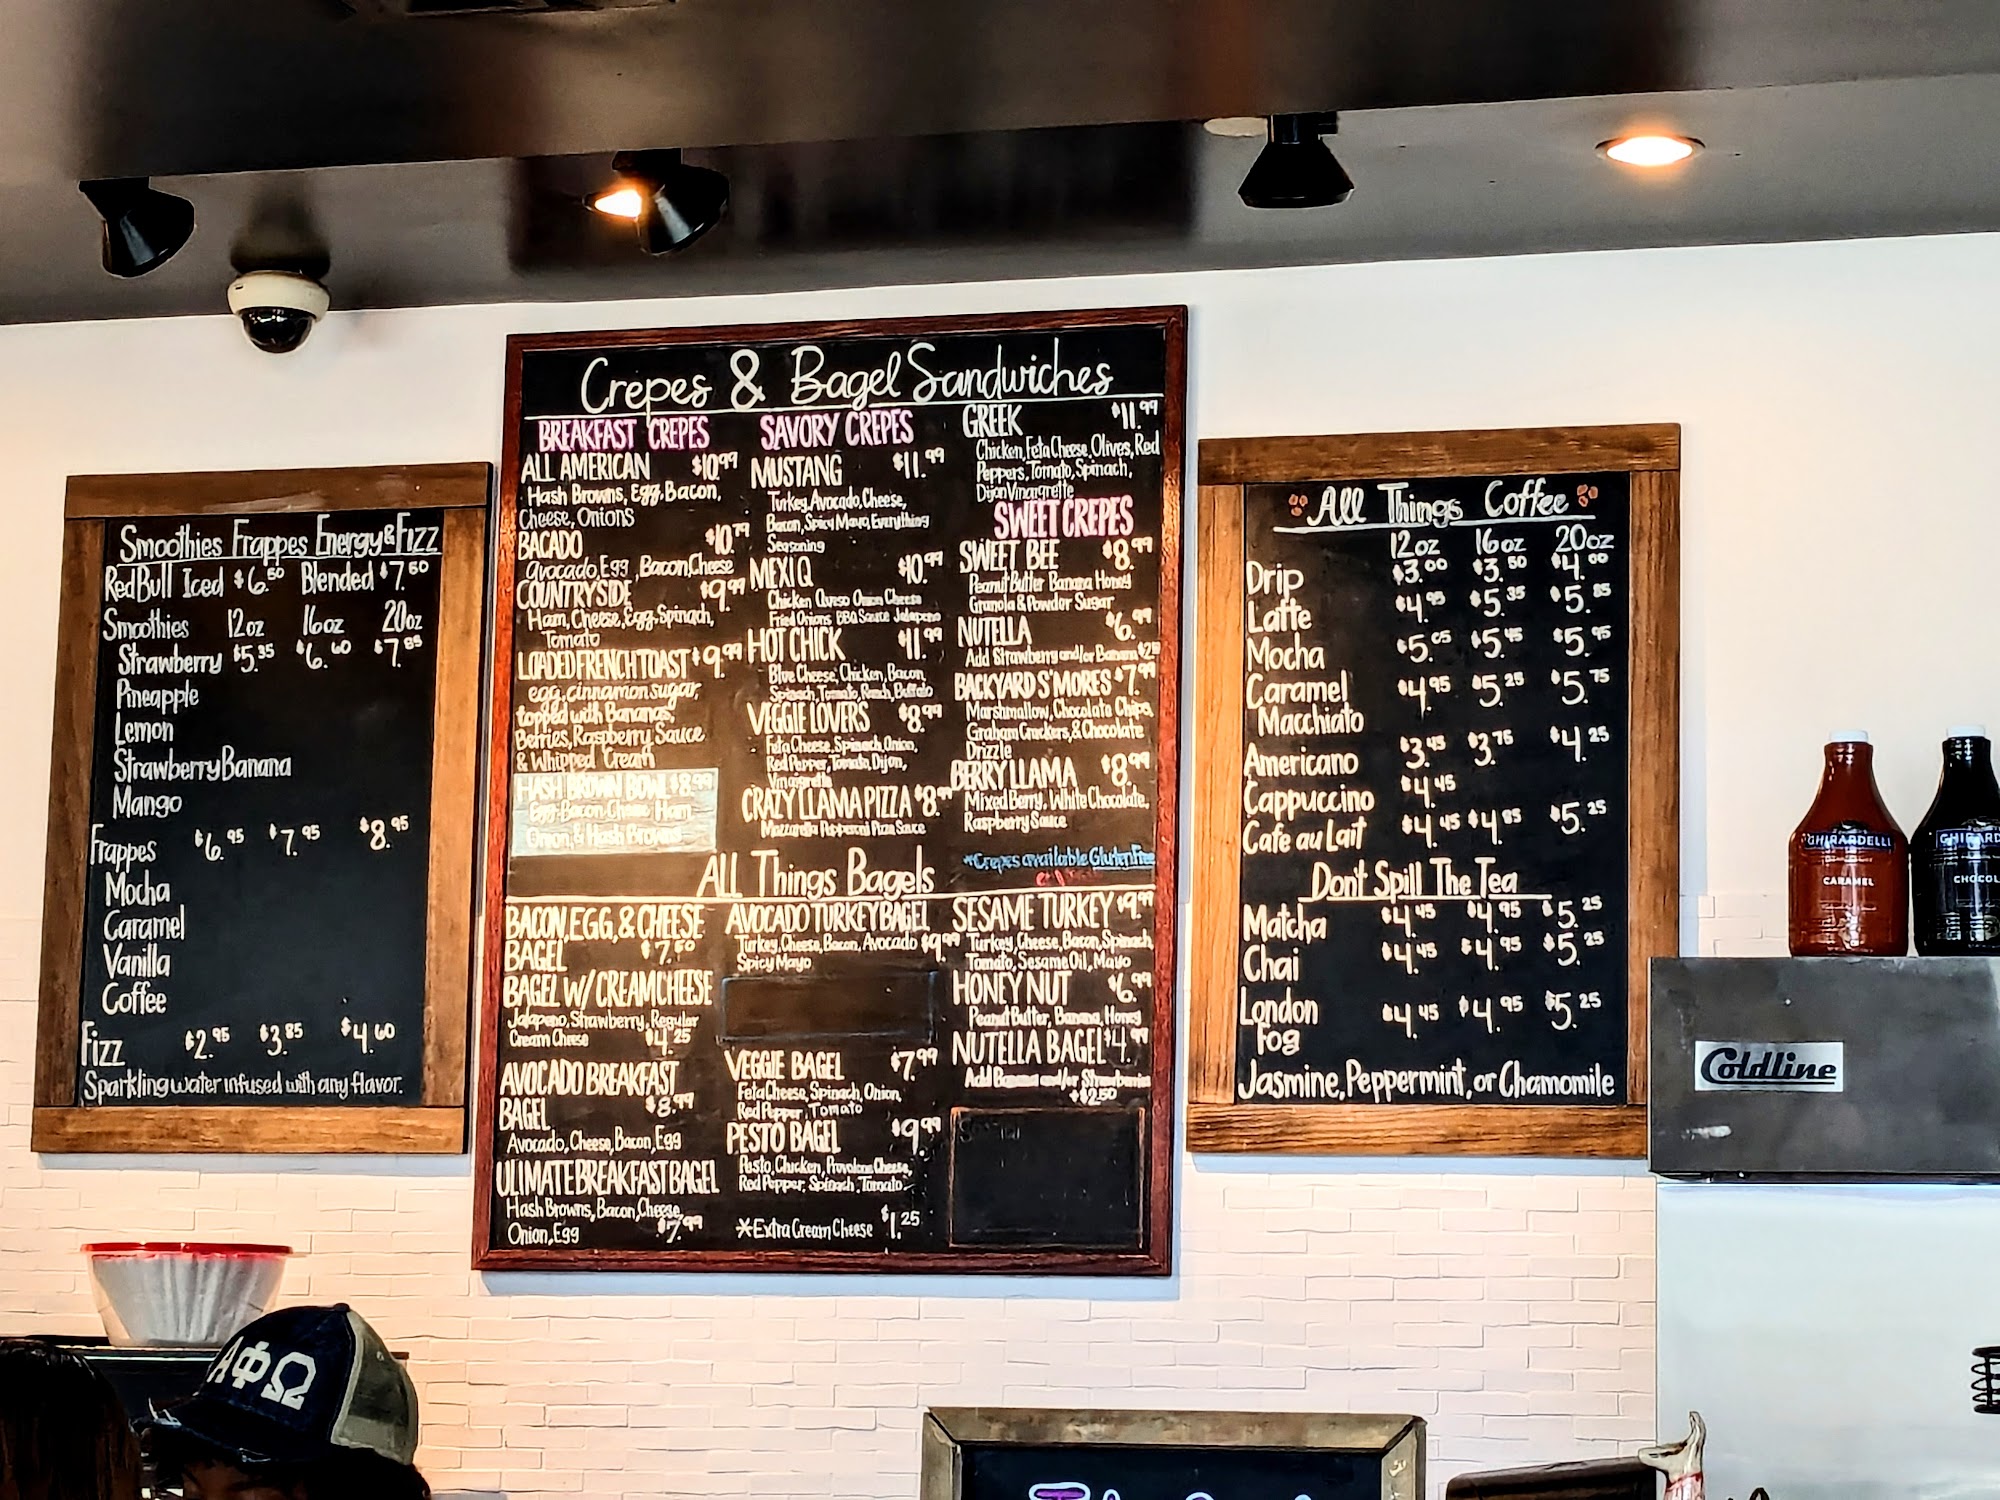 Smoothies Frappes Energy & Fizz
RedBull Iced $6.50 Blended $7.50
Smoothies 12oz 16oz 20oz
Strawberry $5.35 $6.60 $7.85
Pineapple
Lemon
Strawberry Banana
Mango
Frappes $6.95 $7.95 $8.95
Mocha
Caramel
Vanilla
Coffee
Fizz $2.95 $3.85 $4.60
Sparkling water infused with any flavor.
Crepes & Bagel Sandwiches
BREAKFAST CREPES
ALL AMERICAN $10.99
Hash Browns, Egg, Bacon,
Cheese, Onions
BACADO $10.79
Avocado, Egg, Bacon, Cheese
COUNTRYSIDE $9.99
Ham, Cheese, Egg, Spinach,
Tomato
LOADED FRENCH TOAST $9.99
egg, cinnamon sugar,
topped with Bananas,
Berries, Raspberry Sauce
& Whipped Cream
HASH BROWN BOWL $8.99
Egg, Bacon, Cheese, Ham
Onion, & Hash Browns
SAVORY CREPES
MUSTANG $11.99
Turkey, Avocado, Cheese,
Bacon, Spicy Mayo, Everything
Seasoning
MEXI Q $10.99
Chicken Queso Onion Cheese
Fried Onions BBQ Sauce Jalapeno
HOT CHICK $11.99
Blue Cheese, Chicken, Bacon,
Spinach, Tomato, Ranch, Buffalo
VEGGIE LOVERS $8.99
Feta Cheese, Spinach, Onion,
Red Pepper, Tomato, Dijon,
Vinaigrette
CRAZY LLAMA PIZZA $8.99
Mozzarella Pepperoni Pizza Sauce
GREEK $11.99
Chicken, Feta Cheese, Olives, Red
Peppers, Tomato, Spinach,
Dijon Vinaigrette
SWEET CREPES
SWEET BEE $8.99
Peanut Butter Banana Honey
Granola & Powder Sugar
NUTELLA $6.99
Add Strawberry and/or Banana
BACKYARD S'MORES $7.99
Marshmallow, Chocolate Chips,
Graham Crackers, & Chocolate
Drizzle
BERRY LLAMA $8.99
Mixed Berry, White Chocolate,
Raspberry Sauce
*Crepes available Gluten Free
ALL Things Bagels
BACON, EGG, & CHEESE
BAGEL $7.50
BAGEL W/ CREAM CHEESE
Jalapeno, Strawberry, Regular
Cream Cheese $4.25
AVOCADO BREAKFAST
BAGEL $8.99
Avocado, Cheese, Bacon, Egg
ULIMATE BREAKFAST BAGEL
Hash Browns, Bacon, Cheese,
Onion, Egg $7.99
AVOCADO TURKEY BAGEL
Turkey, Cheese, Bacon, Avocado $9.99
Spicy Mayo
VEGGIE BAGEL $7.99
Feta Cheese, Spinach, Onion,
Red Pepper, Tomato
PESTO BAGEL $9.99
Pesto, Chicken, Provolone Cheese,
Red Pepper, Spinach, Tomato
*Extra Cream Cheese $1.25
SESAME TURKEY $9.99
Turkey, Cheese, Bacon, Spinach,
Tomato, Sesame Oil, Mayo
HONEY NUT $6.99
Peanut Butter, Banana, Honey
NUTELLA BAGEL $4.99
Add Banana and/or Strawberries
+$2.50
All Things Coffee
12oz 16oz 20oz
Drip $3.00 $3.50 $4.00
Latte $4.95 $5.35 $5.85
Mocha $5.05 $5.45 $5.95
Caramel $4.95 $5.25 $5.75
Macchiato
Americano $3.45 $3.75 $4.25
Cappuccino $4.45
Cafe au Lait $4.45 $4.85 $5.25
Don't Spill The Tea
Matcha $4.45 $4.95 $5.25
Chai $4.45 $4.95 $5.25
London $4.45 $4.95 $5.25
Fog
Jasmine, Peppermint, or Chamomile
GHIRARDELLI
CARAMEL
GHIRARD
CHOCOL
Coldline
ΑΦΩ